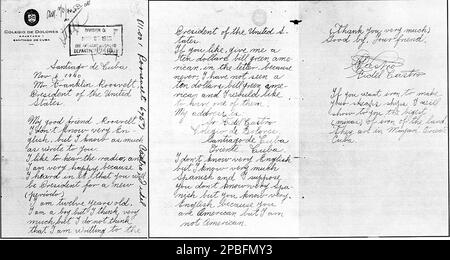 COLEGIO DE DOLORES
SANTIAGO DE CUBA
DIVISION
Santiago de Cuba
Nov 6 1940
Mr Franklin Roosevelt,
President of the United
States.
My good friend Roosevelt
I don't know very En-
glish, but I know as much
as write to you.
I like to hear the radio, and
I am very happy, because
I heard in it, that you will
be President for a new
(periodo)
I am twelve years old.
I am a boy but I think very
much but I do not think
that I am writting to the
President of the United S-
tates.
If you like, give me a
ten dollars bill green ame-
rican, in the letter, because
never, I have not seen a
ten dollars bill green ame-
rican and I would like
to have one of them.
My address is:
Sr Fidel Castro
Colegio de Dolores
Santiago de Cuba
Oriente Cuba
I don't know very English
but I know very much
Spanish and I suppose
you don't know very Spa-
nish but you know very
English because you
are American but I am
not American.
(Thank you very much)
Good by. Your friend,
Fidel Castro
If you want iron to make
your ships I will
show to you the bigest
(minas) of iron of the land
They are in Mayari Oriente
Cuba.
alamy
Image ID: 2PBFMY3
www.alamy.com